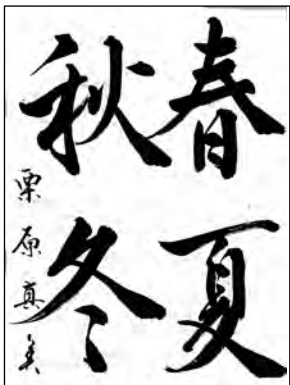 春夏
秋冬
栗原真美